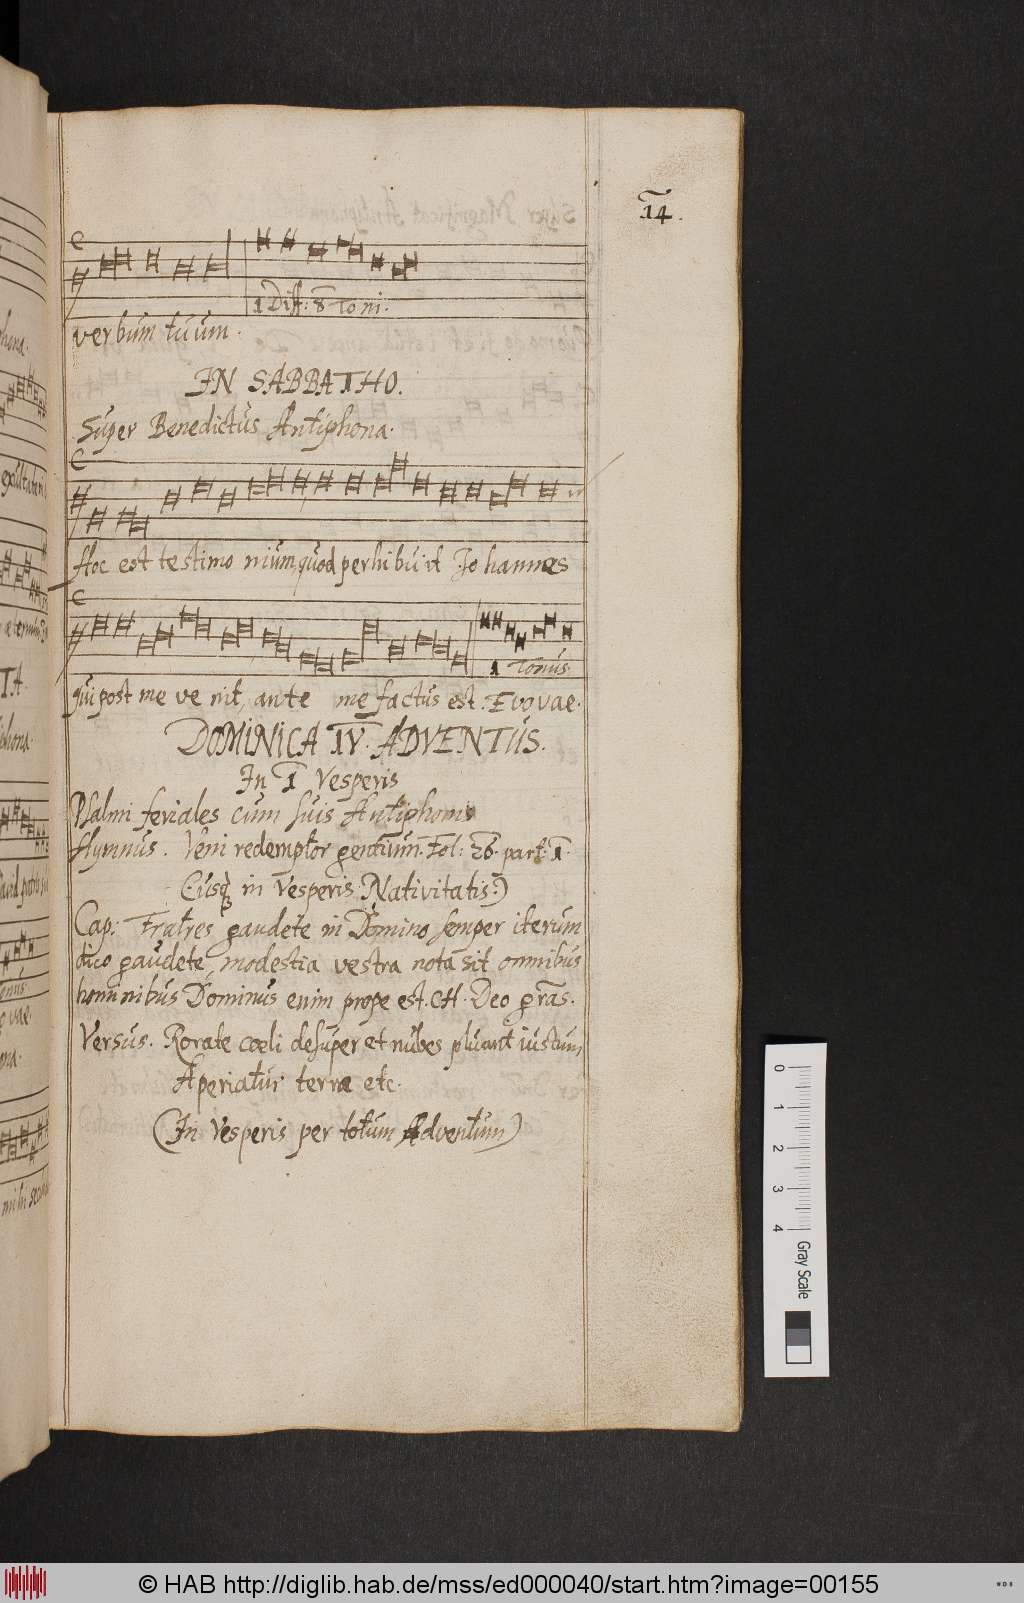 14.
1 Diff: 8 Toni.
verbum tuum.
IN SABBATHO.
Super Benedictus Antiphona.
Hoc est testimonium quod perhibuit Johannes
1 Tonus
qui post me venit, ante me factus est. Evovae.
DOMINICA IV. ADVENTUS.
In 1 Vesperis
Psalmi feriales cum suis Antiphonis
Hymnus. Veni redemptor gentium. Fol: 26. part. 1.
(Usq3 in Vesperis Nativitatis:)
Cap: Fratres gaudete in Domino semper iterum
dico gaudete, modestia vestra nota sit omnibus
hominibus Dominus enim prope est. CH. Deo gras.
Versus. Rorate coeli desuper et nubes pluant iustum
Aperiatur terra etc.
(In Vesperis per totum Adventum)
© HAB http://diglib.hab.de/mss/ed000040/start.htm?image=00155
0 1 2 3 4 Gray Scale